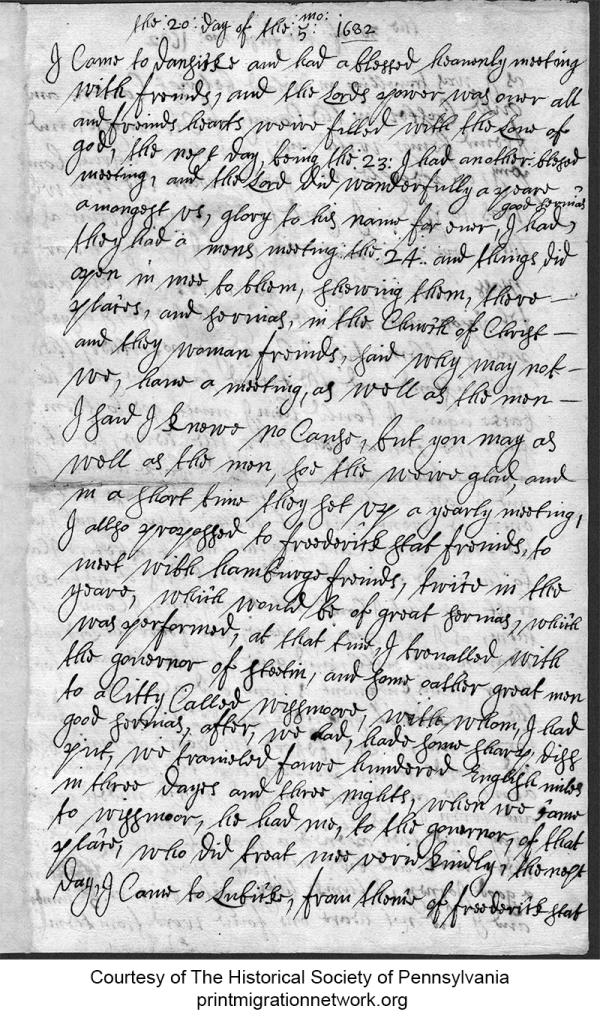 the: 20: day of the: 5: mo: 1682
I Came to danzicke and had a blessed heavenly meeting
with freinds, and the Lords power was over all
and freinds hearts weire filled with the Love of
god, the next day, being the: 23: I had another blesed
meeting, and the Lord did wonderfully apeare
amongest us, glory to his name for ever, I had, good servis
they had a mens meeting the: 24: and things did
open in mee to them, shewing them, there —
places, and servis, in the Church of Christ —
and they woman freinds, said why may not —
we, have a meeting, as well as the men —
I said I knowe no Cause, but you may as
well as the men, soe the weire glad, and
in a short time they set up a yearly meeting,
I allso propossed to freederick stat freinds, to
meet with hamburge freinds, twice in the
yeare, which would be of great servis, which
was performed, at that time, I travalled with
the governor of stetin, and some oather great men
to a Citty Called wissmoore, with whom, I had
good servis, after, we had, hade some sharp diss
put, we traveled foure hundered English miles
in three dayes and three nights, when we came
to wissmoor, he had me, to the governor, of that
place, who did treat mee verie kindly, the next
day, I Came to Lubicke, from thence of freederick stat
Courtesy of The Historical Society of Pennsylvania
printmigrationnetwork.org